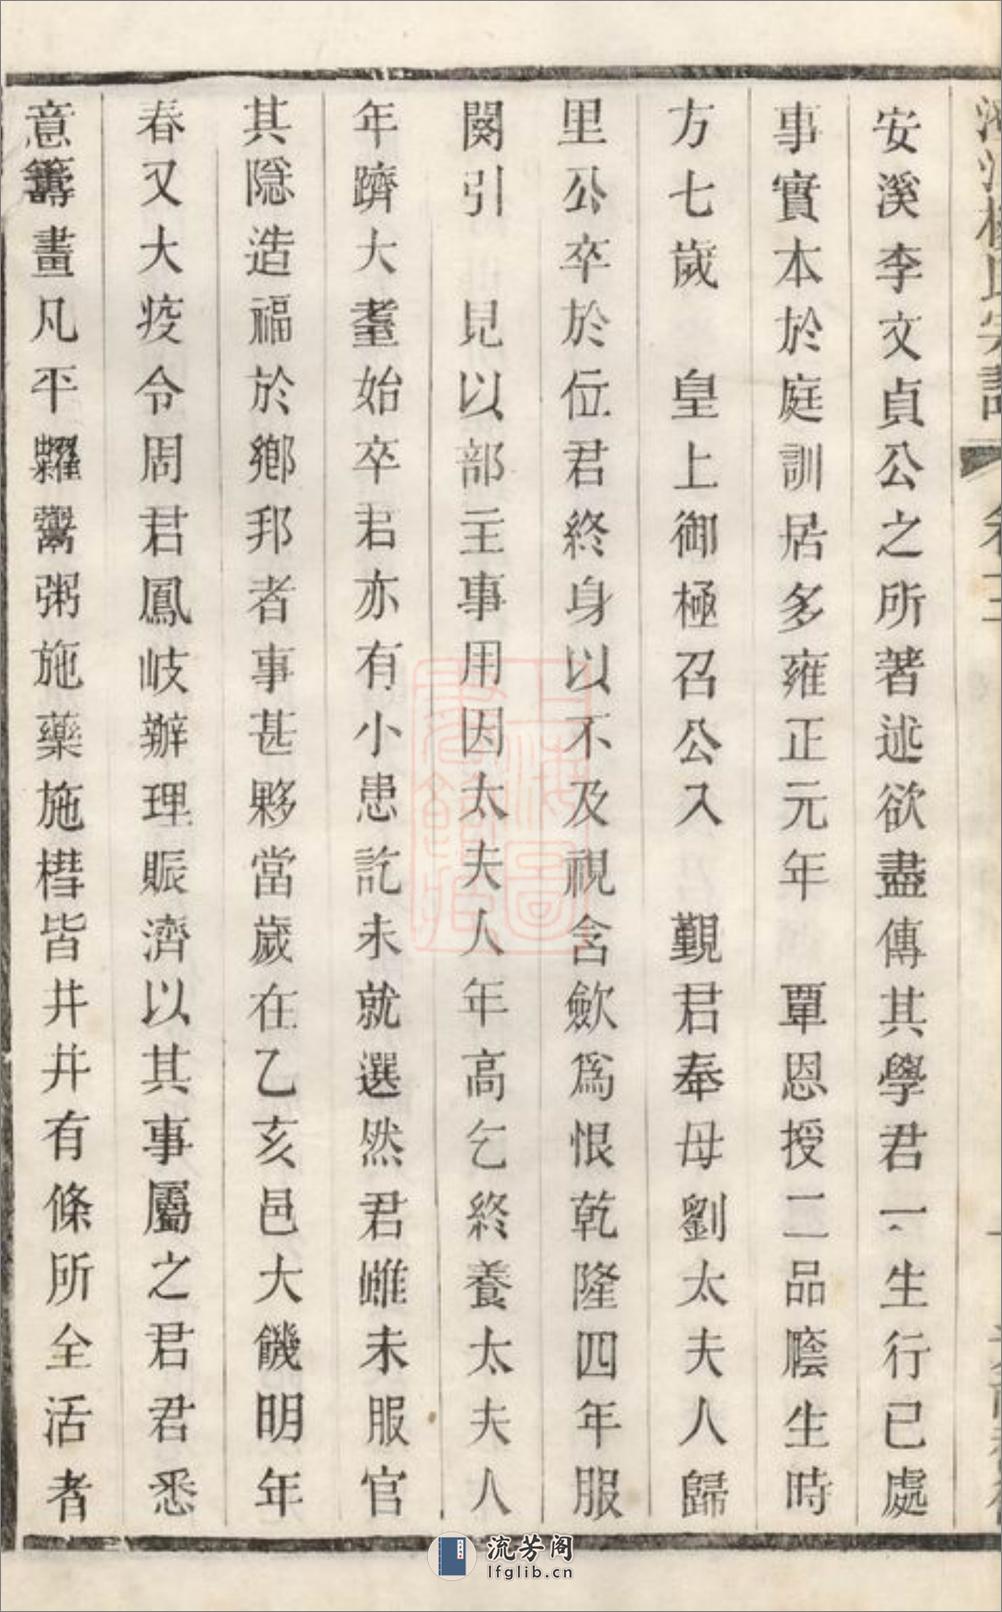 安溪李文貞公之所著述欲盡傳其學君一生行已處
事實本於庭訓居多雍正元年　覃恩授二品廕生時
方七歲　皇上御極召公入　覲君奉母劉太夫人歸
里公卒於位君終身以不及視含歛爲恨乾隆四年服
闋引　見以部主事用因太夫人年高乞終養太夫人
年躋大耋始卒君亦有小患訖未就選然君雖未服官
其隱造福於鄉邦者事甚夥當歲在乙亥邑大饑明年
春又大疫令周君鳳岐辦理賑濟以其事屬之君君悉
意籌畫凡平糶鬻粥施藥施槥皆井井有條所全活者
流芳阁
lfglib.cn